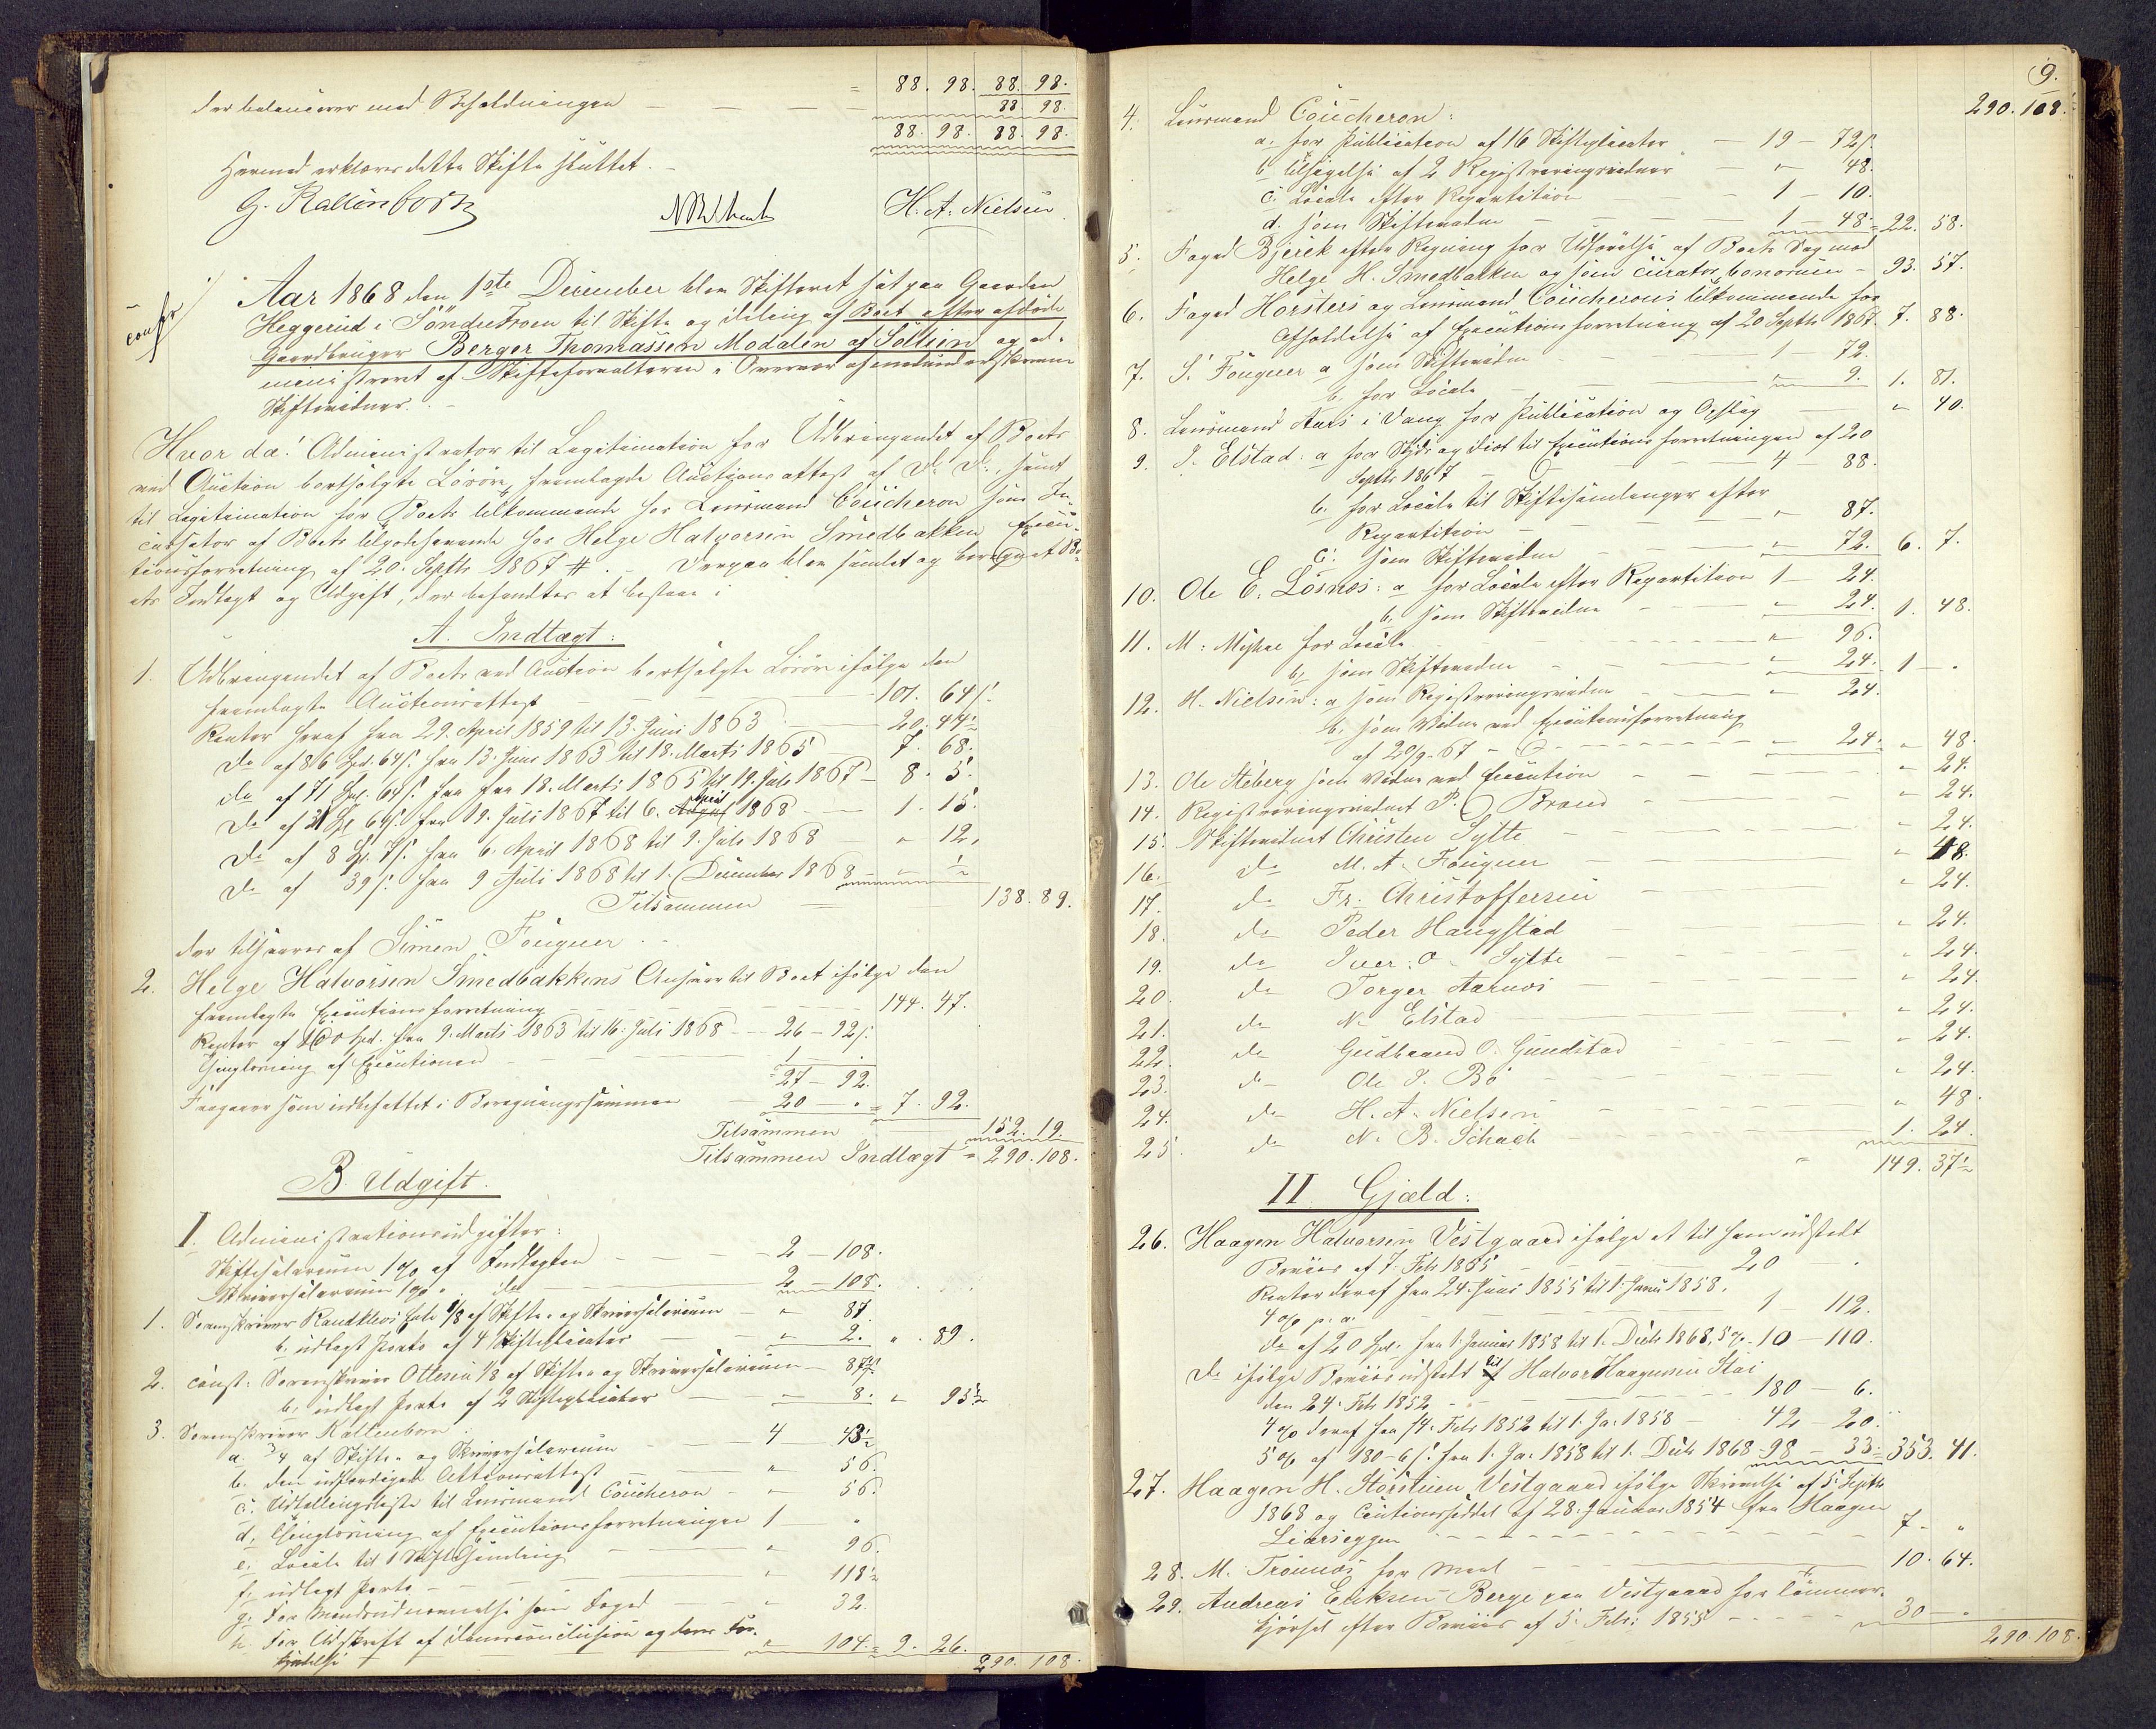 88. 98. 88. 98.
der balancerer med Beholdningen — — — 88. 98.
88. 98. 88. 98.
Hermed erklæres dette Skifte sluttet. —
G. Kallenborn N B Schach H. A. Nielsen
confr
Aar 1868 den 1ste December blev Skifteret sat paa Gaarden
Heggerud i Søndre Froen til Skifte og Deling af Boet efter afdøde
Gaardbruger Berger Thomassen Modalen af Sollien og ad-
ministreret af Skifteforvalteren i Overvær af medunderskrevne
Skiftevidner. —
Hvor da! Administrator til Legitimation for Udbringendet af Boets
ved Auction bortsolgte Løsøre, fremlagde Auctionsattest af D. D., samt
til Legitimation for Boets tilkommende hos Lensmand Coucheron som In-
cassator af Boets tilgodehavende hos Helge Halvorsen Smedbakken Execu-
tionsforretning af 20. Septbr 1867 #. — Derpaa blev samlet og beregnet Bo-
ets Indtægt og Udgift, der befandtes at bestaae i
A. Indtægt:
1. Udbringendet af Boets ved Auction bortsolgte Løsøre ifølge den
fremlagte Auctionsattest — 101. 64 s.
Renter heraf fra 29. April 1859 til 13. Juni 1863 — 20. 44 ½
Do af 86 Spd. 64 s. fra 13. Juni 1863 til 18. Marts 1865 — 7. 68.
do af 71 Spd. 64 s. fra fra 18. Marts 1865 til 19. Juli 1867 — 8. 5.
Do af 31 Sp 64 s. fra 19. Juli 1867 til 6. April 1868 — 1. 15.
Do af 8 Sp. 7 s. fra 6. April 1868 til 9. Juli 1868 — " 12.
Do af 39 s. fra 9 Juli 1868 til 1. December 1868 — " ½
Tilsammen — 138. 89.
der tilsvares af Simen Fougner. —
2. Helge Halvorsen Smedbakkens Ansvar til Boet ifølge den
fremlagte Executionsforretning — 144. 47.
Renter af 100 Spd. fra 9. Marts 1863 til 16. Juli 1868 — 26 — 92 s.
Thinglæsning af Executionen — 1
27 — 92.
Fragaaer som indbefattet i Beregningssummen — 20 — " = 7. 92.
Tilsammen — 152. 19.
Tilsammen Indtægt = 290. 108.
B. Udgift.
I. Administrationsudgifter:
Skiftesalarium 1 % af Indtægten — 2 — 108.
Skriversalarium 1 % " do — 2 — 108.
1. Sorenskriver Randklevs Enke 1/8 af Skifte- og Skriversalarium — " 87
b. udlagt Porto af 4 Skifteplacater — " 2. " 89.
2. const. Sorenskriver Ottesen 1/8 af Skifte- og Skriversalarium — 87 ½
b. udlagt Porto af 2 Skifteplacater — " 8. " 95 ½
3. Sorenskriver Kallenborn:
a. ¾ af Skifte- og Skriversalarium — 4 43 ½
b. den udfærdigede Attionsattest — " 56.
c. Udtællingsliste til Lensmand Coucheron — " 56.
d. Thinglæsning af Executionsforretningen 1 "
e. Locale til 1 Skiftesamling — " 96.
f. udlagt Porto — " 118 ½
g. for Mandsudnævnelse som Foged — " 32.
h. For Udskrift af Domsconclusion og dens For-
kyndelse — " 104. = 9. 26.
290. 108.
9.
290. 108.
4. Lensmand Coucheron:
a. for Publication af 16 Skifteplacater — 19 — 72 s.
b. Tilsigelse af 2 Registreringsvidner — " 48.
c. Locale efter Repartition — 1 — 10.
d. som Skiftevidne — 1 — 48 = 22. 58.
5. Foged Bjerck efter Regning for Udførelse af Boets Sag mod
Helge H. Smedbakken og som Curator bonorum — 93. 57.
6. Foged Horsters og Lensmand Coucherons tilkommende for
Afholdelse af Executionsforretning af 20 Septbr 1867. 7. 88.
7. S. Fougner a som Skiftevidne 1 — 72.
b. for Locale — " 9. 1. 81.
8. Lensmand Aars i Vang for Publication og Opslag — " 40.
9. J. Elstad: a for Skyds og Diet til Executionsforretningen af 20
Septbr 1867 — 4 — 88.
b. for Locale til Skiftesamlinger efter
Repartition — " 87.
c. som Skiftevidne — " 72. 6. 7.
10. Ole E. Løsnes: a for Locale efter Repartition 1 — 24.
b. som Skiftevidne — " 24. 1. 48.
11. M. Myhre for Locale — " 96.
b. som Skiftevidne — " 24. 1 — .
12. H. Nielsen: a som Registreringsvidne — " 24.
b. som Vidne ved Executionsforretning
af 20/9-67 — " 24. " 48.
13. Ole Aaberg som Vidne ved Execution — " 24.
14. Registreringsvidnet P. Brand — " 24.
15. Skiftevidnet Christen Sylte — " 24.
16. do M. A. Fougner — " 48.
17. do Fr. Christoffersen — " 24.
18. do Peder Haugstad — " 24.
19. do Iver O. Sylte — " 24.
20. do Torger Aarnes — " 24.
21. do N. Elstad — " 24.
22. do Gudbrand O. Gundstad — " 24.
23. do Ole J. Bø — " 24.
24. do H. A. Nielsen — " 48.
25. do N. B. Schach — 1. 24.
149. 37 ½
II. Gjæld:
26. Haagen Halvorsen Vestgaard ifølge et til ham udstedt
Beviis af 7. Feb. 1855 — 20 — .
Renter deraf fra 24. Juni 1855 til 1. Januar 1858.
4 % p. a. — 1 — 112.
do af 20 Spd. fra 1. Januar 1858 til 1. Decbr 1868, 5 % — 10 — 110.
Do ifølge Beviis udstedt til Halvor Haagensen Stai
den 24. Feb. 1852 — 180 — 6.
4 % deraf fra 24. Feb. 1852 til 1. Ja. 1858 — 42 — 20.
5 % af 180 - 6 s. fra 1. Ja. 1858 til 1. Decbr 1868 - 98 — 33 = 353. 41.
27. Haagen H. Storstuen Vestgaard ifølge Skrivelse af 5. Septbr
1868 og Cautionsseddel af 28. Januar 1854 fra Haagen
Liarseggen — 7 — "
28. M. Trønnes for Meel — 10. 64.
29. Andreas Eriksen Berge paa Vestgaard for Tømmer-
kjørsel efter Beviis af 5. Febr. 1855 — 30 — .
290. 108.